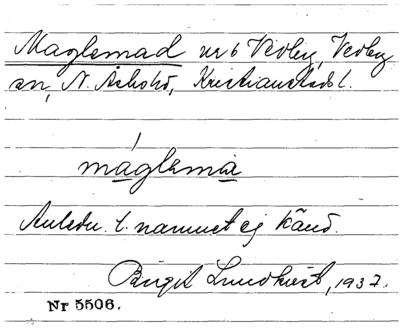 Maglemad nr 6 Vedby, Vedby
sn, N. Åsbohd, Kristianstads l.
máglema
Anledn. t. namnet ej känd.
Birgit Lundkvist, 1937.
Nr 5506.